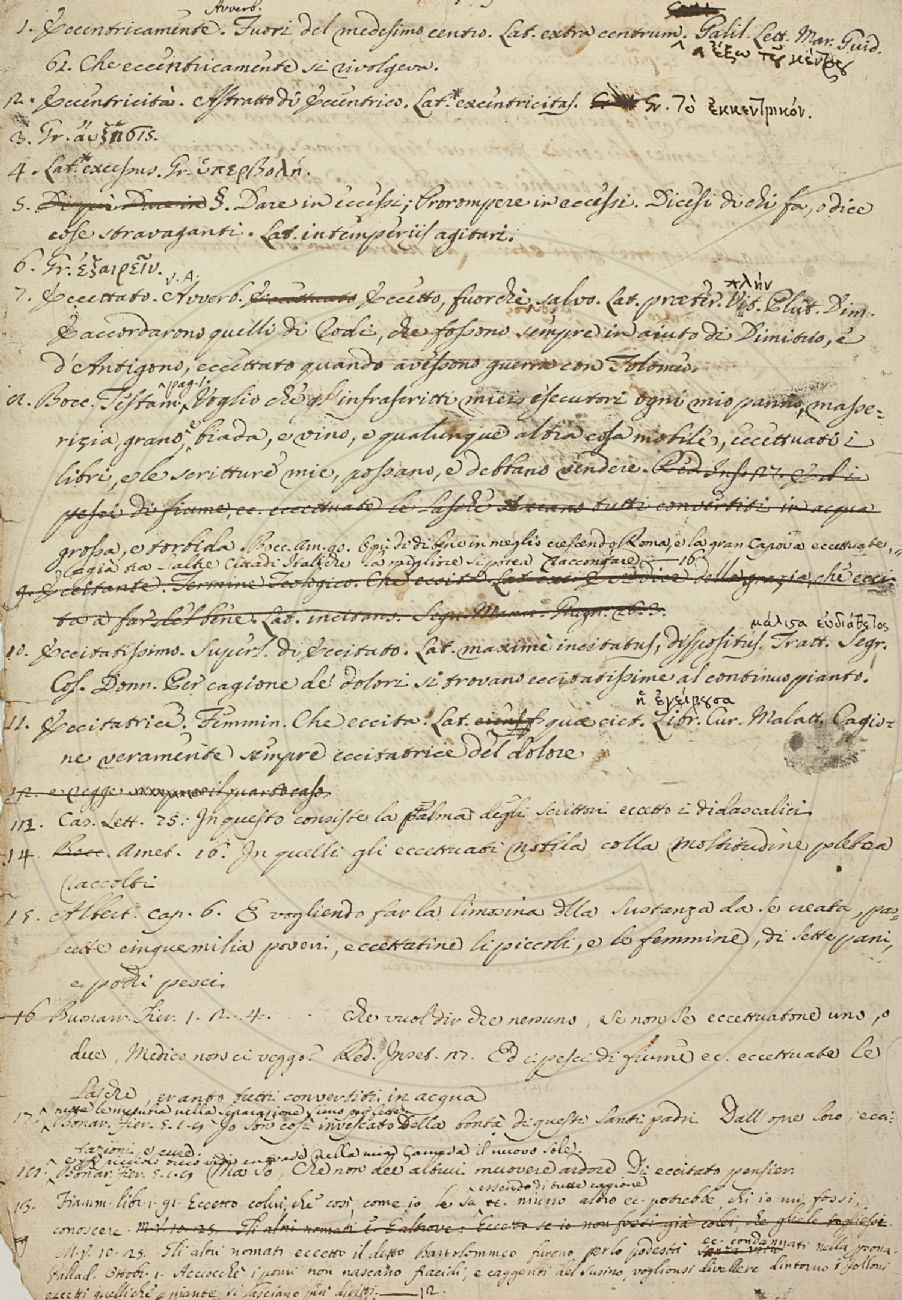 Avverb.
1. Eccentricamente. Fuori del medesimo centro. Lat. extra centrum. Galil. Lett. Mar. Guid.
ἔξω τοῦ κέντρου
62. Che eccentricamente si rivolgeva.
12. Eccentricità. Astratto di Eccentrico. Lat. excentricitas. Gr. τὸ ἐκκεντρικόν.
3. Gr. αὔξησις.
4. Lat. excessus. Gr. ὑπερβολή.
5. §. Dare in eccessi; Prorompere in eccessi. Dicesi di chi fa, o dice
cose stravaganti. Lat. intemperiis agitari.
6. Gr. ἐξαιρεῖν.
V. A. πλήν
7. Eccettato. Avverb. Eccetto, fuorchè, salvo. Lat. præter. Vit. Plut. Dim.
E accordarono quelli di Rodi, che fossono sempre in aiuto di Dimitrio, e
d'Antigono, eccettato quando avessono guerra con Tolomeo.
pag. 1.
Bocc. Testam. Voglio che gl'infrascritti miei esecutori ogni mio panno, masse-
rizia, grano, e biada, e vino, e qualunque altra cosa mobile, eccettuati i
libri, e le scritture mie, possano, e debbano vendere. Red. Ins. 127. Ed i
pesci di fiume ec. eccettuate le lasche erano tutti convertiti in acqua
grossa, e torbida Bocc. di dì in meglio crescendo Roma, e la gran Capova eccettuate,
Italiche la migliore si potea raccontare. 16
9. Eccitante. Termine Teologico. Che eccita. Lat. della grazia, che ecci-
ta a far del bene. Lat. incitans. Segn. Mann.
μάλιστα
10. Eccitatissimo. Superl. di Eccitato. Lat. maxime incitatus, dispositus. Tratt. Segr.
Cos. Donn. Per cagione de' dolori si trovano eccitatissime al continuo pianto.
ἡ ἐγείρουσα
11. Eccitatrice. Femmin. Che eccita. Lat. quæ ciet. Libr. Cur. Malatt. Cagio-
ne veramente sempre eccitatrice del dolore
e legge il quarto caso
Cas. Lett. 25. In questo consiste la palma degli scrittori eccetto i didascalici
14. Amet. 16. In quelli gli eccettuati nobili colla moltitudine plebea
raccolti
15. Albert. cap. 6. E vogliendo far la limosina della sustanza da se creata, pa-
scette cinquemilia poveri, eccettatine li piccoli, e le femmine, di sette pani,
e pochi pesci
16 Buonarr. Fier. 1. 2. 4. Che vuol dir che nessuno, se non se eccettuatone uno, o
due, Medico non ci veggo? Red. Inset. 127. Ed i pesci di fiume ec. eccettuate le
Lasche, erano tutti convertiti in acqua
Buonar. Fier. 5. 1. 9 Io son così invescato della bontà di questi santi padri Dall'opre loro, ecci-
tazioni, e
nella mia il nuovo sole
Buonar. Fier. 5. 1. 9 Ma so, che non dee altrui muovere ardore Di eccitato pensier
essendo di tutto cagione
Fiamm. lib. 1. 91. Eccetto colui, che così, come io, le sa ec. niuno altro ec. potrebbe chi io mi fossi,
conoscere. M. V. 10. 25. Gli altri nomati Eccetto se io non fossi già colei, che
ec. condannati
M. V. 10. 25. Gli altri nomati eccetto il detto Bartolommeo furono per lo podestà nella persona
Pallad. Ottobr. 1. Acciocchè i pomi non nascano fracidi, e caggenti del susino, voglionsi divellere dintorno i polloni
eccetti quelli che si lasciano più diritti. 12.